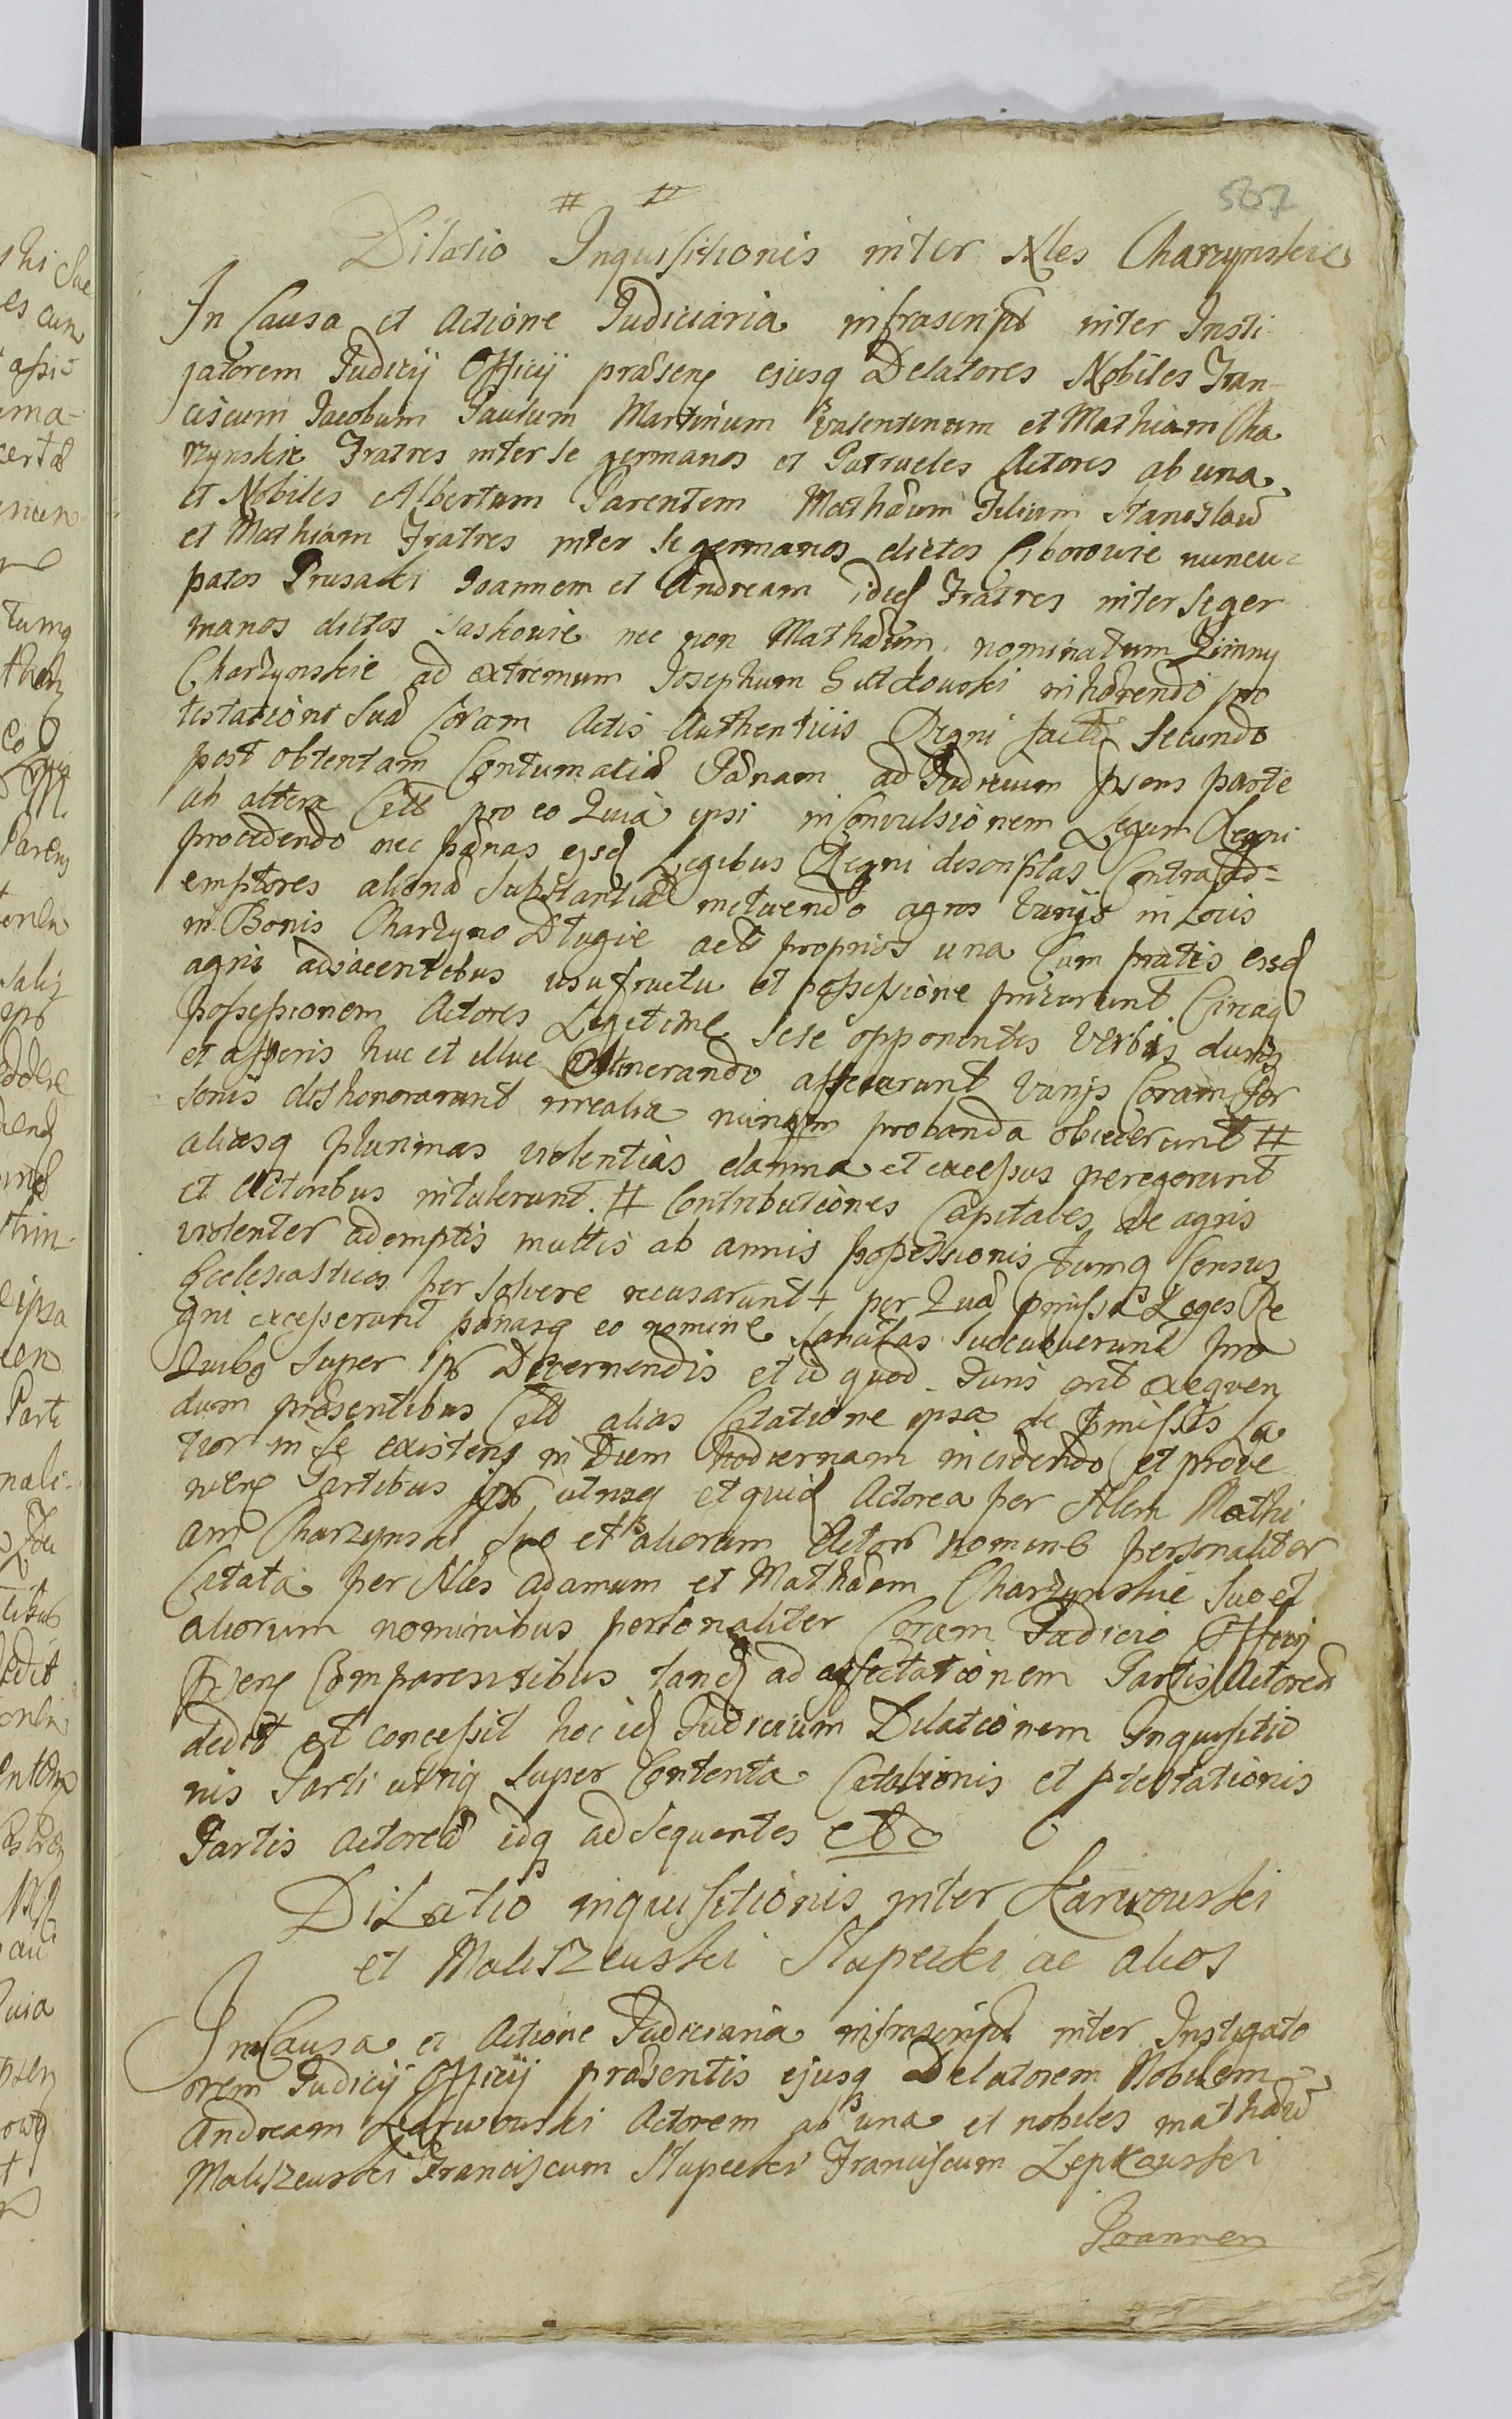 507
# #
Dilatio Inquisitionis inter Nles Charzynskie
In Causa et Actione Judiciaria infrascript inter Insti-
gatorem Judicij Officij præsens ejusq Delatores Nobiles Fran-
ciscum Jacobum Paulum Martinum Valentinum et Mathiam Cha
rzynskie Fratres inter se germanos et Patrueles Actores ab una
et Nobiles Albertum Parentem Mathæum Filium Stanislaū
et Mathiam Fratres inter se germanos dictos Ciborowie nuncu-
patos Prusacki Joannem et Andream ided Fratres inter se ger
manos dictos Jaskowie nec non Mathæum nominatum Zimny
Charzynskie ad extremum Josephum Gutckowski inhærendo pro
testationi suæ Coram Actis Authenticis Regni factæ secundo
post obtentam Contumaciæ Pænam ad Judicium psens parte
ab altera Citt pro eo Quia ipsi in Convulsionem Legum Regni
procedendo nec pænas eisd Legibus Regni descriptas Contra ad=
emptores alienæ substantiæ metuendo agros varijs in Locis
in Bonis Charzyno Dlugie act proprios una Cum pratis eisd
agris adjacentibus usufructu et possessione privarunt Circaq
possessionem Actores Legitime sese opponentes verbis duris
et asperis huc et illuc Itinerando affecerunt varijs Coram Per
sonis dishonorarunt irrealia nunqm probanda obiecerunt #
aliasq plurimas violentias damna et excessus peregerunt
et Actoribus intulerunt. # Contributiones Capitales de agris
violenter ademptis multis ab annis possessionis tumq Census
Ecclesiasticos persolvere recusarunt + per Quæ præmissa Leges Re
gni excesserunt pænasq eo nomine sancitas succubuerunt pro
Quibs super ips Decernendis et id quod Juris erit exequen
dum præsentibus Citt alias Citatione ipsa de præmissis La
tior in se existens in Diem hodiernam incidendo et prove
niens Partibus ips utrisq et quid Actorea per Nlem Mathi
am Charzynski suo et aliorum Actor nomine personaliter
Citata per Nles Adamum et Mathæum Charzynskie suo et
aliorum nominibus personaliter Coram Judicio Officij
Psens Comparentibus tand ad affectationem Partis Actoreæ
dedit et concessit hoc id Judicium Dilationem Inquisitio
nis Parti utriq super Contenta Citationis et ptestationis
Partis Actoreæ idq ad sequentes etc
Dilatio inquisitionis inter Karwowski
et Maliszewski Slupecki ac alios
In Causa et Actione Judiciaria infrascript inter Instigato
orem Judicij Officij præsentis ejusq Delatorem Nobilem
Andream Karwowski Actorem ab una et nobiles Mathæū
Maliszewski Franciscum Slupecki Franciscum Lepkowski
Joannem